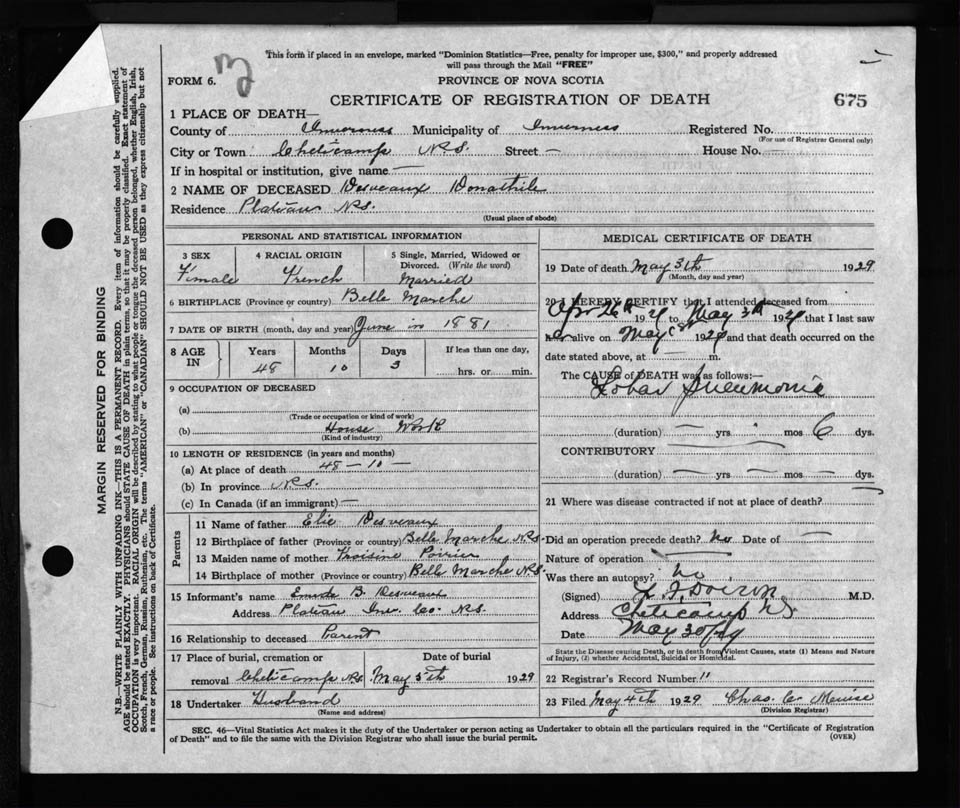 This form if placed in an envelope, marked "Dominion Statistics—Free, penalty for improper use, $300," and properly addressed
will pass through the Mail "FREE"
FORM 6.
PROVINCE OF NOVA SCOTIA
CERTIFICATE OF REGISTRATION OF DEATH
675
1 PLACE OF DEATH—
County of Inverness Municipality of Inverness Registered No.
(For use of Registrar General only)
City or Town Cheticamp N.S. Street — House No. —
If in hospital or institution, give name —
2 NAME OF DECEASED Desveaux Donathile
Residence Plateau N.S.
(Usual place of abode)
PERSONAL AND STATISTICAL INFORMATION
3 SEX 4 RACIAL ORIGIN 5 Single, Married, Widowed or Divorced. (Write the word)
Female French Married
6 BIRTHPLACE (Province or country) Belle Marche
7 DATE OF BIRTH (month, day and year) June in 1881
8 AGE IN Years Months Days If less than one day,
48 10 3 hrs. or min.
9 OCCUPATION OF DECEASED
(a)
(Trade or occupation or kind of work)
(b) House Work
(Kind of industry)
10 LENGTH OF RESIDENCE (in years and months)
(a) At place of death 48 – 10 –
(b) In province N.S.
(c) In Canada (if an immigrant) —
Parents
11 Name of father Elie Desveaux
12 Birthplace of father (Province or country) Belle Marche N.S.
13 Maiden name of mother Poirier
14 Birthplace of mother (Province or country) Belle Marche N.S.
15 Informant's name B. Desveaux
Address Plateau Inv. Co. N.S.
16 Relationship to deceased Parent
17 Place of burial, cremation or Date of burial
removal Cheticamp N.S. May 5th 1929
18 Undertaker Husband
(Name and address)
MEDICAL CERTIFICATE OF DEATH
19 Date of death May 3th 1929
(Month, day and year)
20 I HEREBY CERTIFY that I attended deceased from
Apr 26th 1929 to May 3th 1929 that I last saw
her alive on May 1929 and that death occurred on the
date stated above, at — m.
The CAUSE of DEATH was as follows:—
Lobar Pneumonia
(duration) — yrs mos 6 dys.
CONTRIBUTORY
(duration) — yrs — mos — dys.
21 Where was disease contracted if not at place of death? —
Did an operation precede death? No Date of —
Nature of operation —
Was there an autopsy? No
(Signed) Doiron M.D.
Address Cheticamp N.S.
Date May 30/29
State the Disease causing Death, or in death from Violent Causes, state (1) Means and Nature
of Injury, (2) whether Accidental, Suicidal or Homicidal.
22 Registrar's Record Number 11
23 Filed May 4th 1929 Chas. C.
(Division Registrar)
SEC. 46—Vital Statistics Act makes it the duty of the Undertaker or person acting as Undertaker to obtain all the particulars required in the "Certificate of Registration
of Death" and to file the same with the Division Registrar who shall issue the burial permit.
(OVER)
MARGIN RESERVED FOR BINDING
N.B—WRITE PLAINLY WITH UNFADING INK—THIS IS A PERMANENT RECORD. Every item of information should be carefully supplied.
AGE should be stated EXACTLY. PHYSICIANS should STATE CAUSE OF DEATH in plain terms, so that it may be properly classified. Exact statement of
OCCUPATION is very important. RACIAL ORIGIN will be described by stating to what people or tongue the deceased person belonged, whether English, Irish,
Scotch, French, German, Russian, Ruthenian, etc. The terms "AMERICAN" or "CANADIAN" SHOULD NOT BE USED as they express citizenship but not
a race or people. See instructions on back of Certificate.